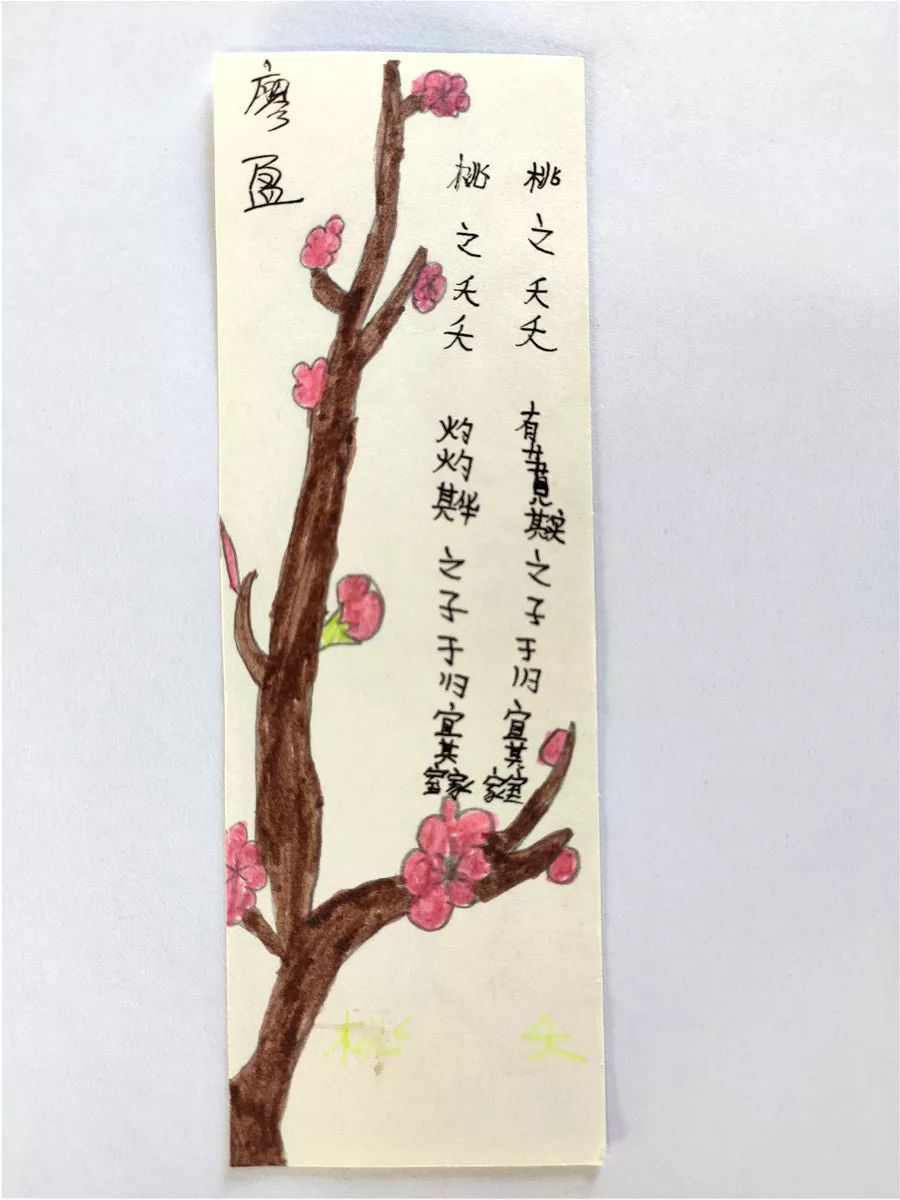 廖盈
桃之夭夭 灼灼其华 之子于归 宜其室家
桃之夭夭 有蕡其实 之子于归 宜其家室
桃夭